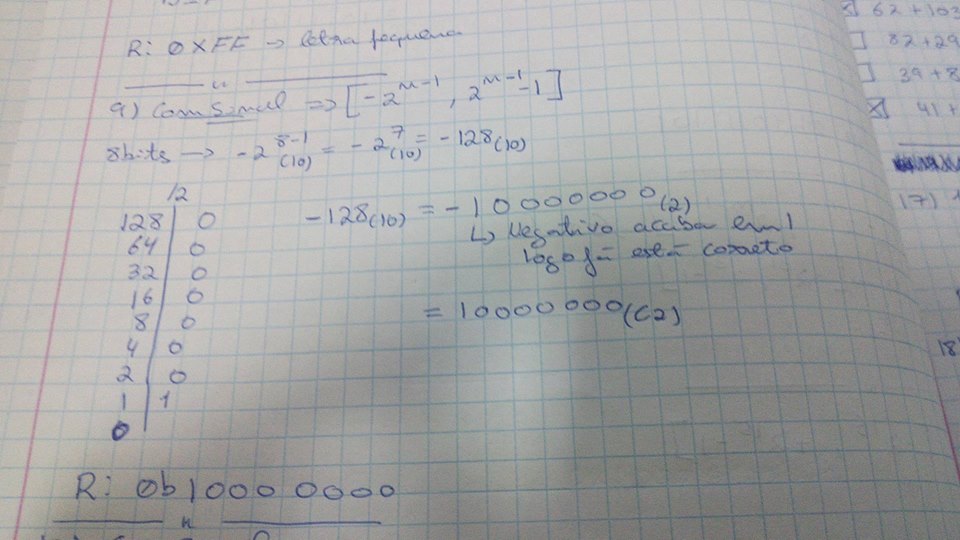 R: 0XFF → letra pequena
9) Com Sinal ⇒ [-2^n-1, 2^n-1 -1]
8bits → -2^8-1 (10) = -2^7 (10) = -128(10)
12
128 | 0
64 | 0
32 | 0
16 | 0
8 | 0
4 | 0
2 | 0
1 | 1
0
-128(10) = -10000000(2)
↳ Negativo acaba em 1
logo já está correto
= 10000000(C2)
R: 0b10000000
62 + 103
82 + 29
39 + 8
41 +
17)
18)